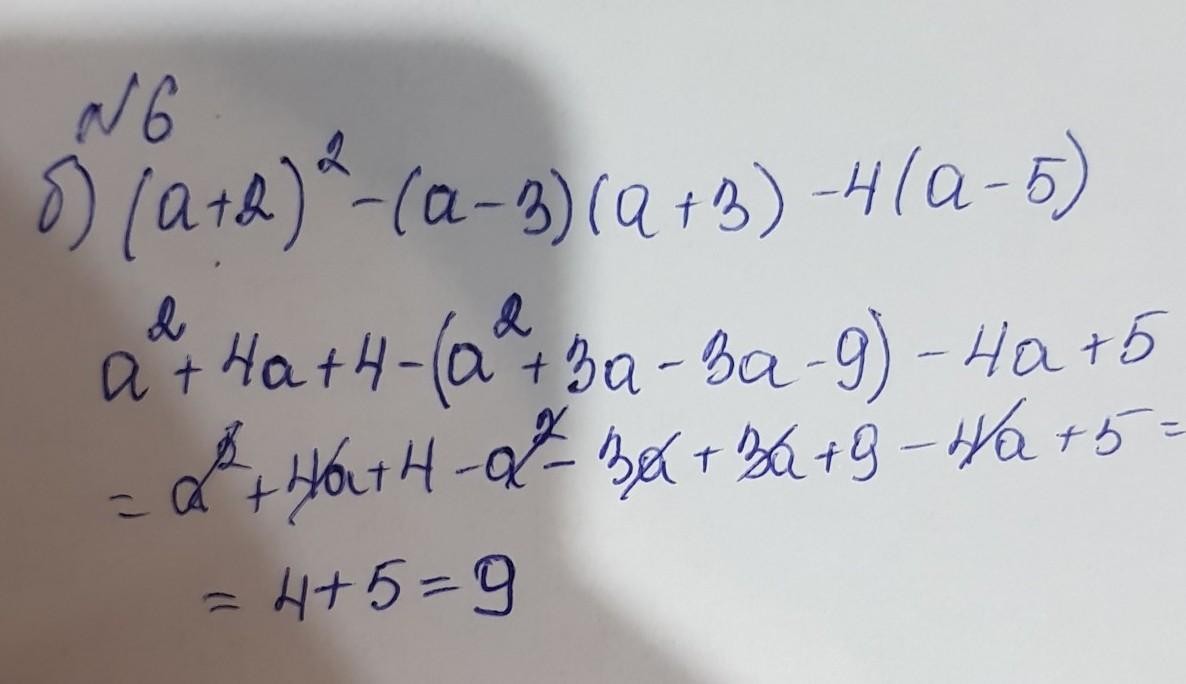 №6
б) (a+2)² -(a-3)(a+3) -4(a-5)
a²+4a+4-(a²+3a-3a-9)-4a+5
= a²+4a+4-a²-3a+3a+9-4a+5=
= 4+5=9